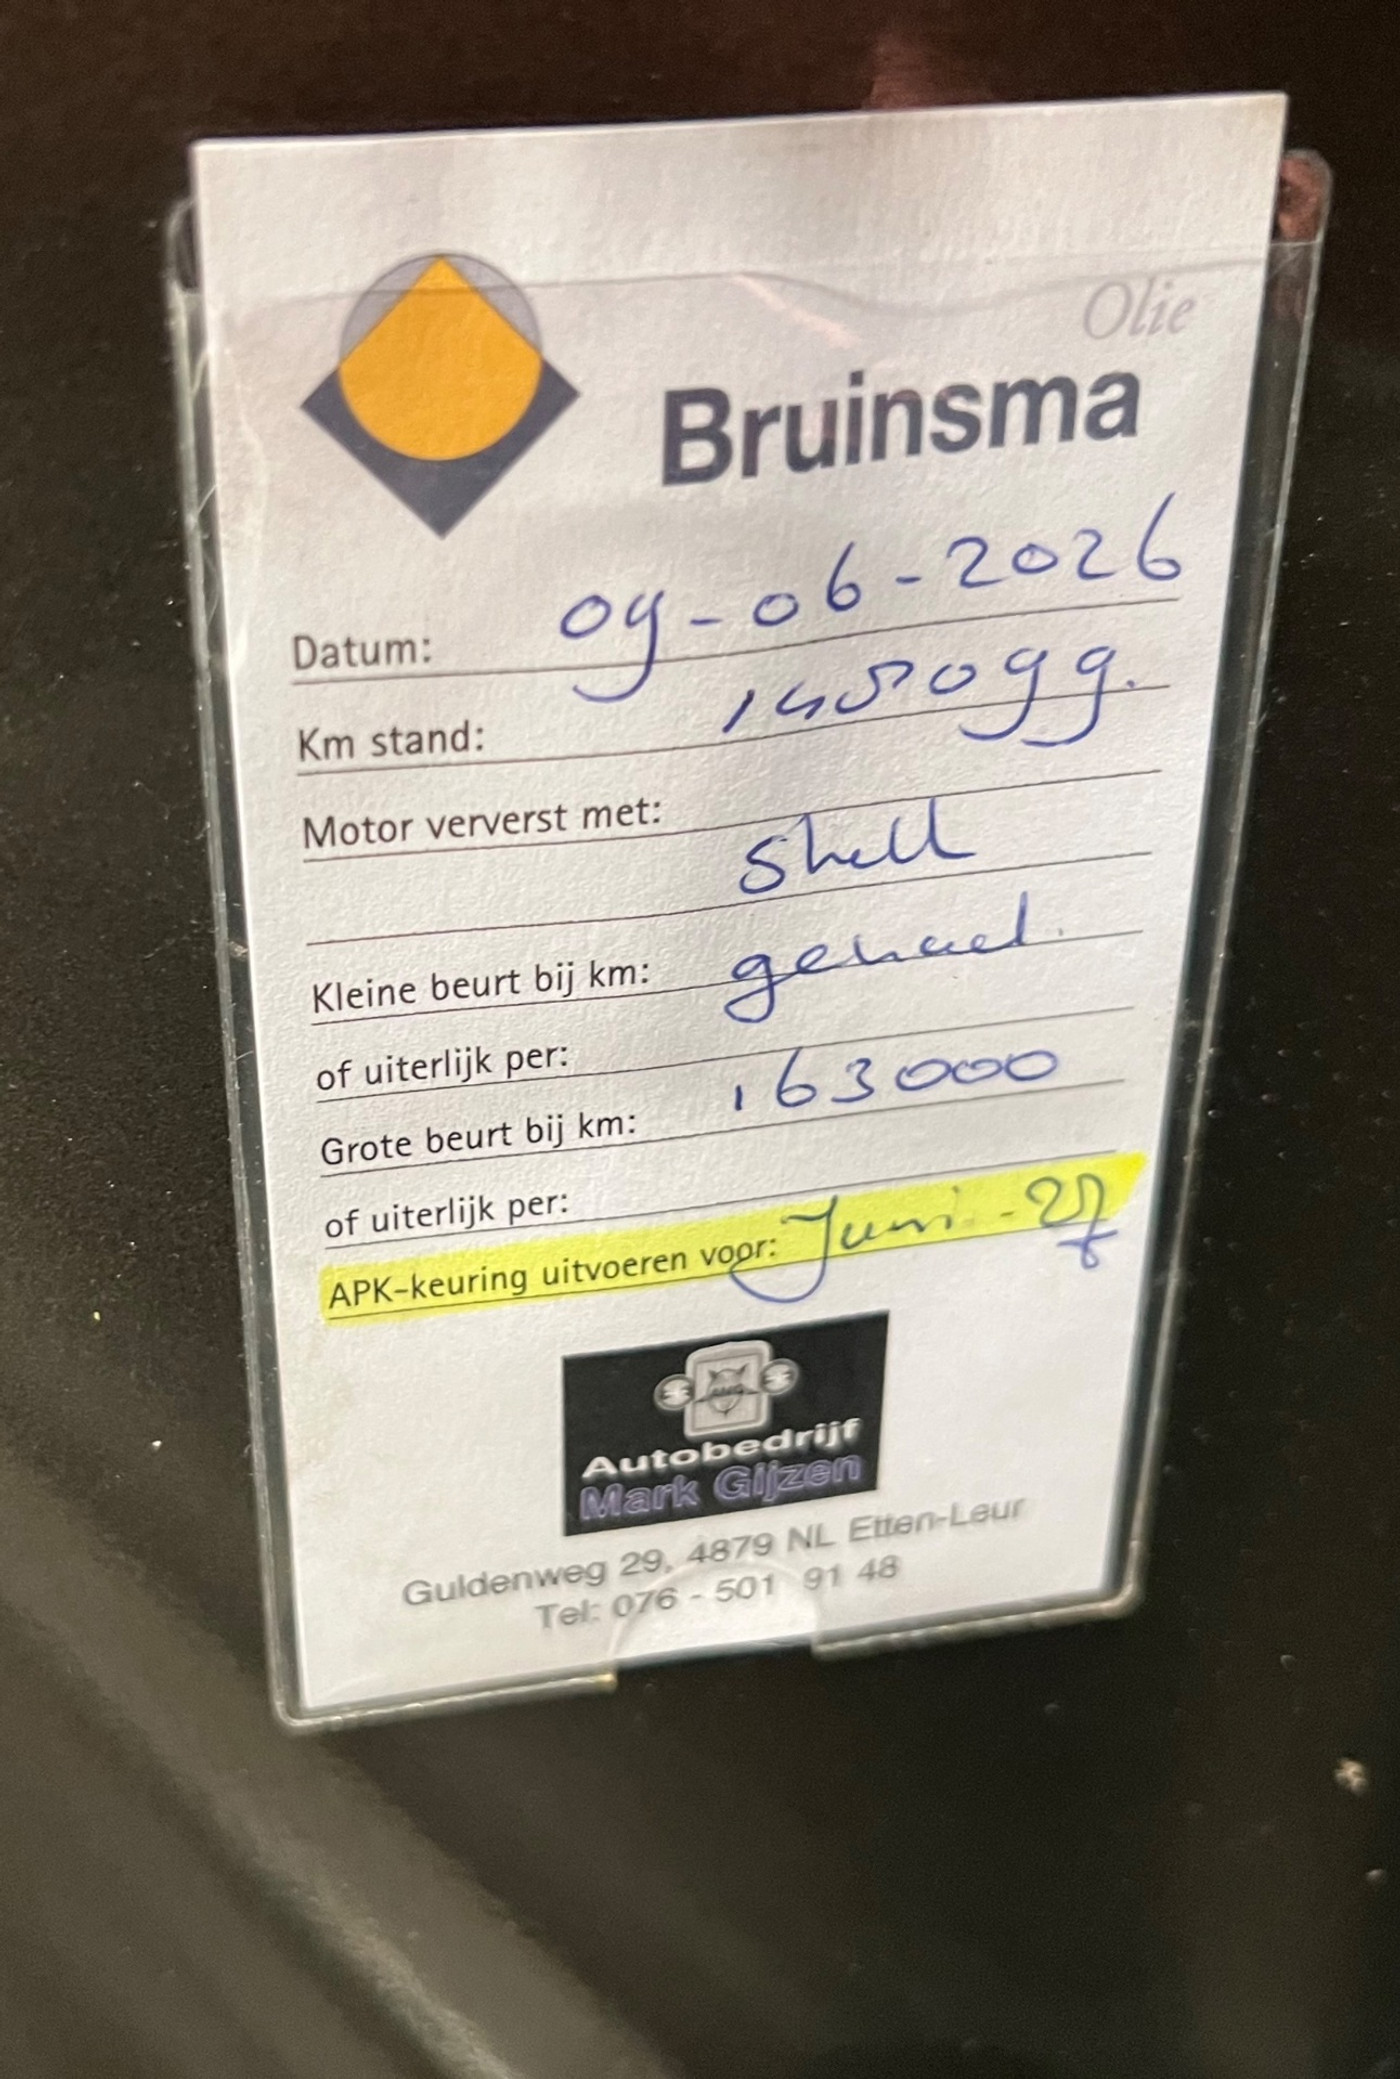 Olie
Bruinsma
Datum: 09-06-2026
Km stand: 145099.
Motor ververst met:
Shell
Kleine beurt bij km: gehad.
of uiterlijk per:
Grote beurt bij km: 163000
of uiterlijk per:
APK-keuring uitvoeren voor: Juni - 27
Autobedrijf
Mark Gijzen
Guldenweg 29, 4879 NL Etten-Leur
Tel: 076 - 501 91 48